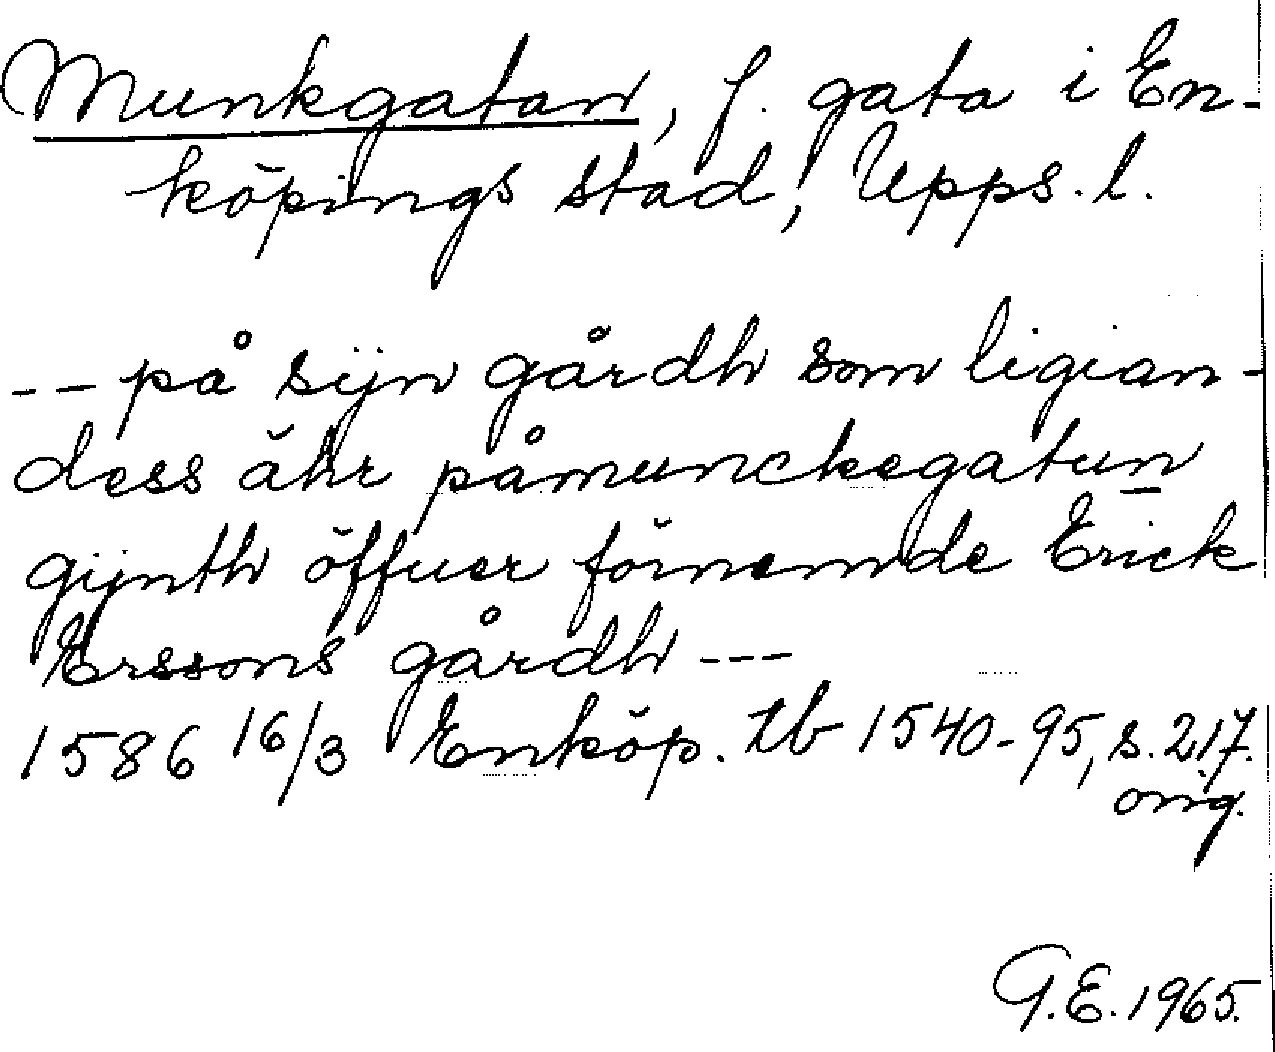 Munkgatan, f. gata i En-
köpings stad, Upps. l.
-- på sijn gårdh som ligian-
dess ähr påmunckegatun
gijnth öffuer förnemde Erick
Erssons gårdh ---
1586 16/3 Enköp. tb 1540-95, s. 217.
orig.
G.E. 1965.